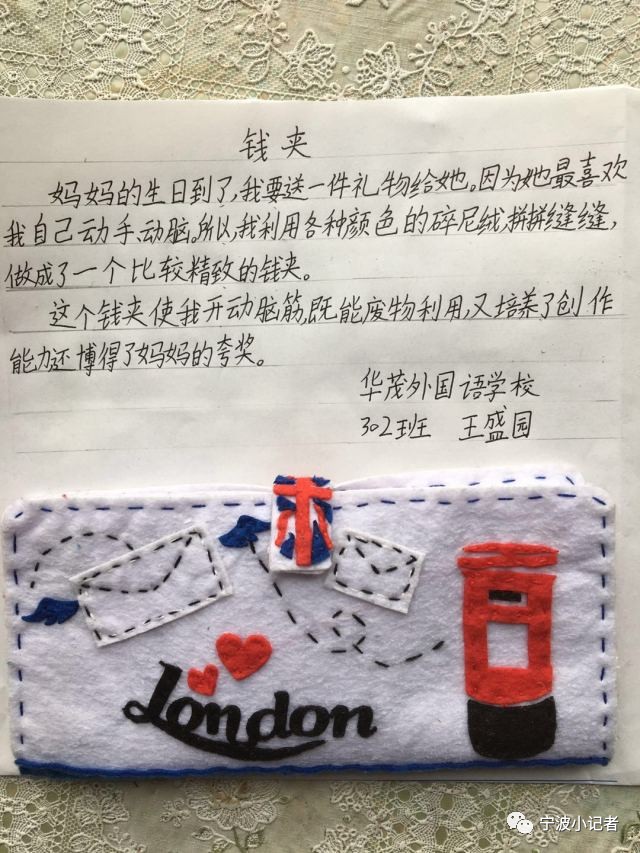 钱夹
妈妈的生日到了,我要送一件礼物给她。因为她最喜欢
我自己动手、动脑。所以,我利用各种颜色的碎尼绒,拼拼缝缝,
做成了一个比较精致的钱夹。
这个钱夹使我开动脑筋,既能废物利用,又培养了创作
能力还博得了妈妈的夸奖。
华茂外国语学校
302班 王盛园
London
宁波小记者